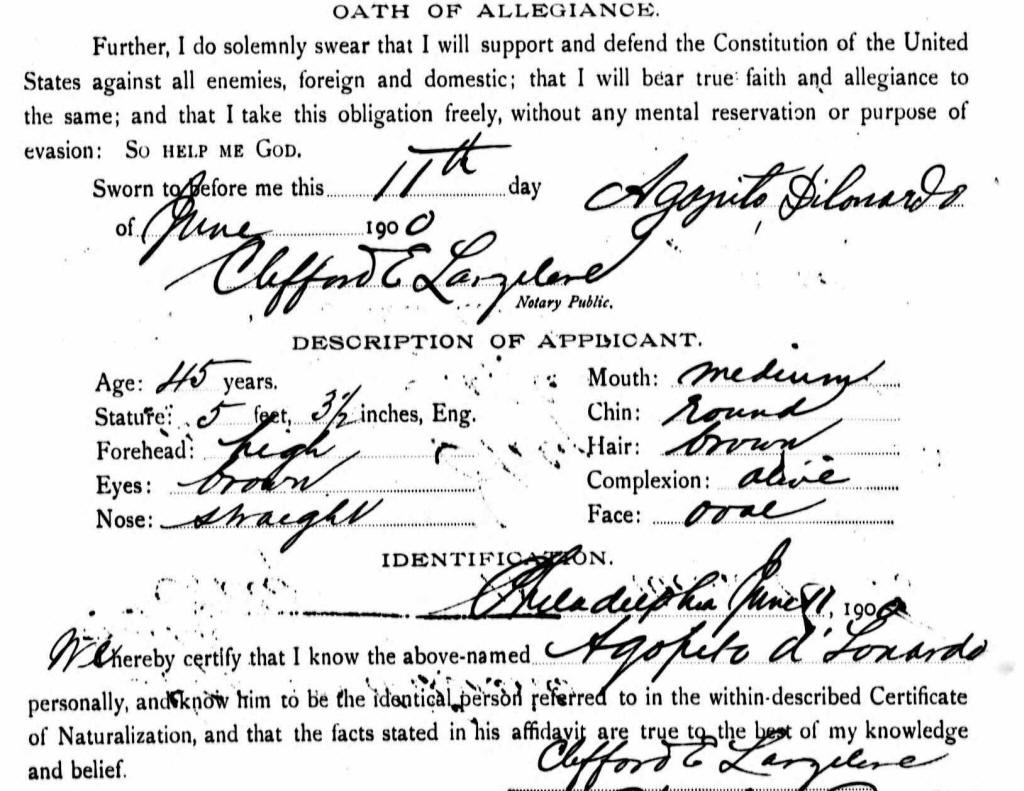 OATH OF ALLEGIANCE.
Further, I do solemnly swear that I will support and defend the Constitution of the United
States against all enemies, foreign and domestic; that I will bear true faith and allegiance to
the same; and that I take this obligation freely, without any mental reservation or purpose of
evasion: SO HELP ME GOD.
Sworn to before me this 11th day
Agopito Dilonardo
of June 1900
Clifford E
Notary Public.
DESCRIPTION OF APPLICANT.
Age: 45 years. Mouth: medium
Stature: 5 feet, 3½ inches, Eng. Chin: round
Forehead: high Hair: brown
Eyes: brown Complexion: olive
Nose: straight Face: oval
IDENTIFICATION.
Philadelphia June 11, 1900
We hereby certify that I know the above-named Agopito d'Lonardo
personally, and know him to be the identical person referred to in the within-described Certificate
of Naturalization, and that the facts stated in his affidavit are true to the best of my knowledge
and belief.
Clifford E